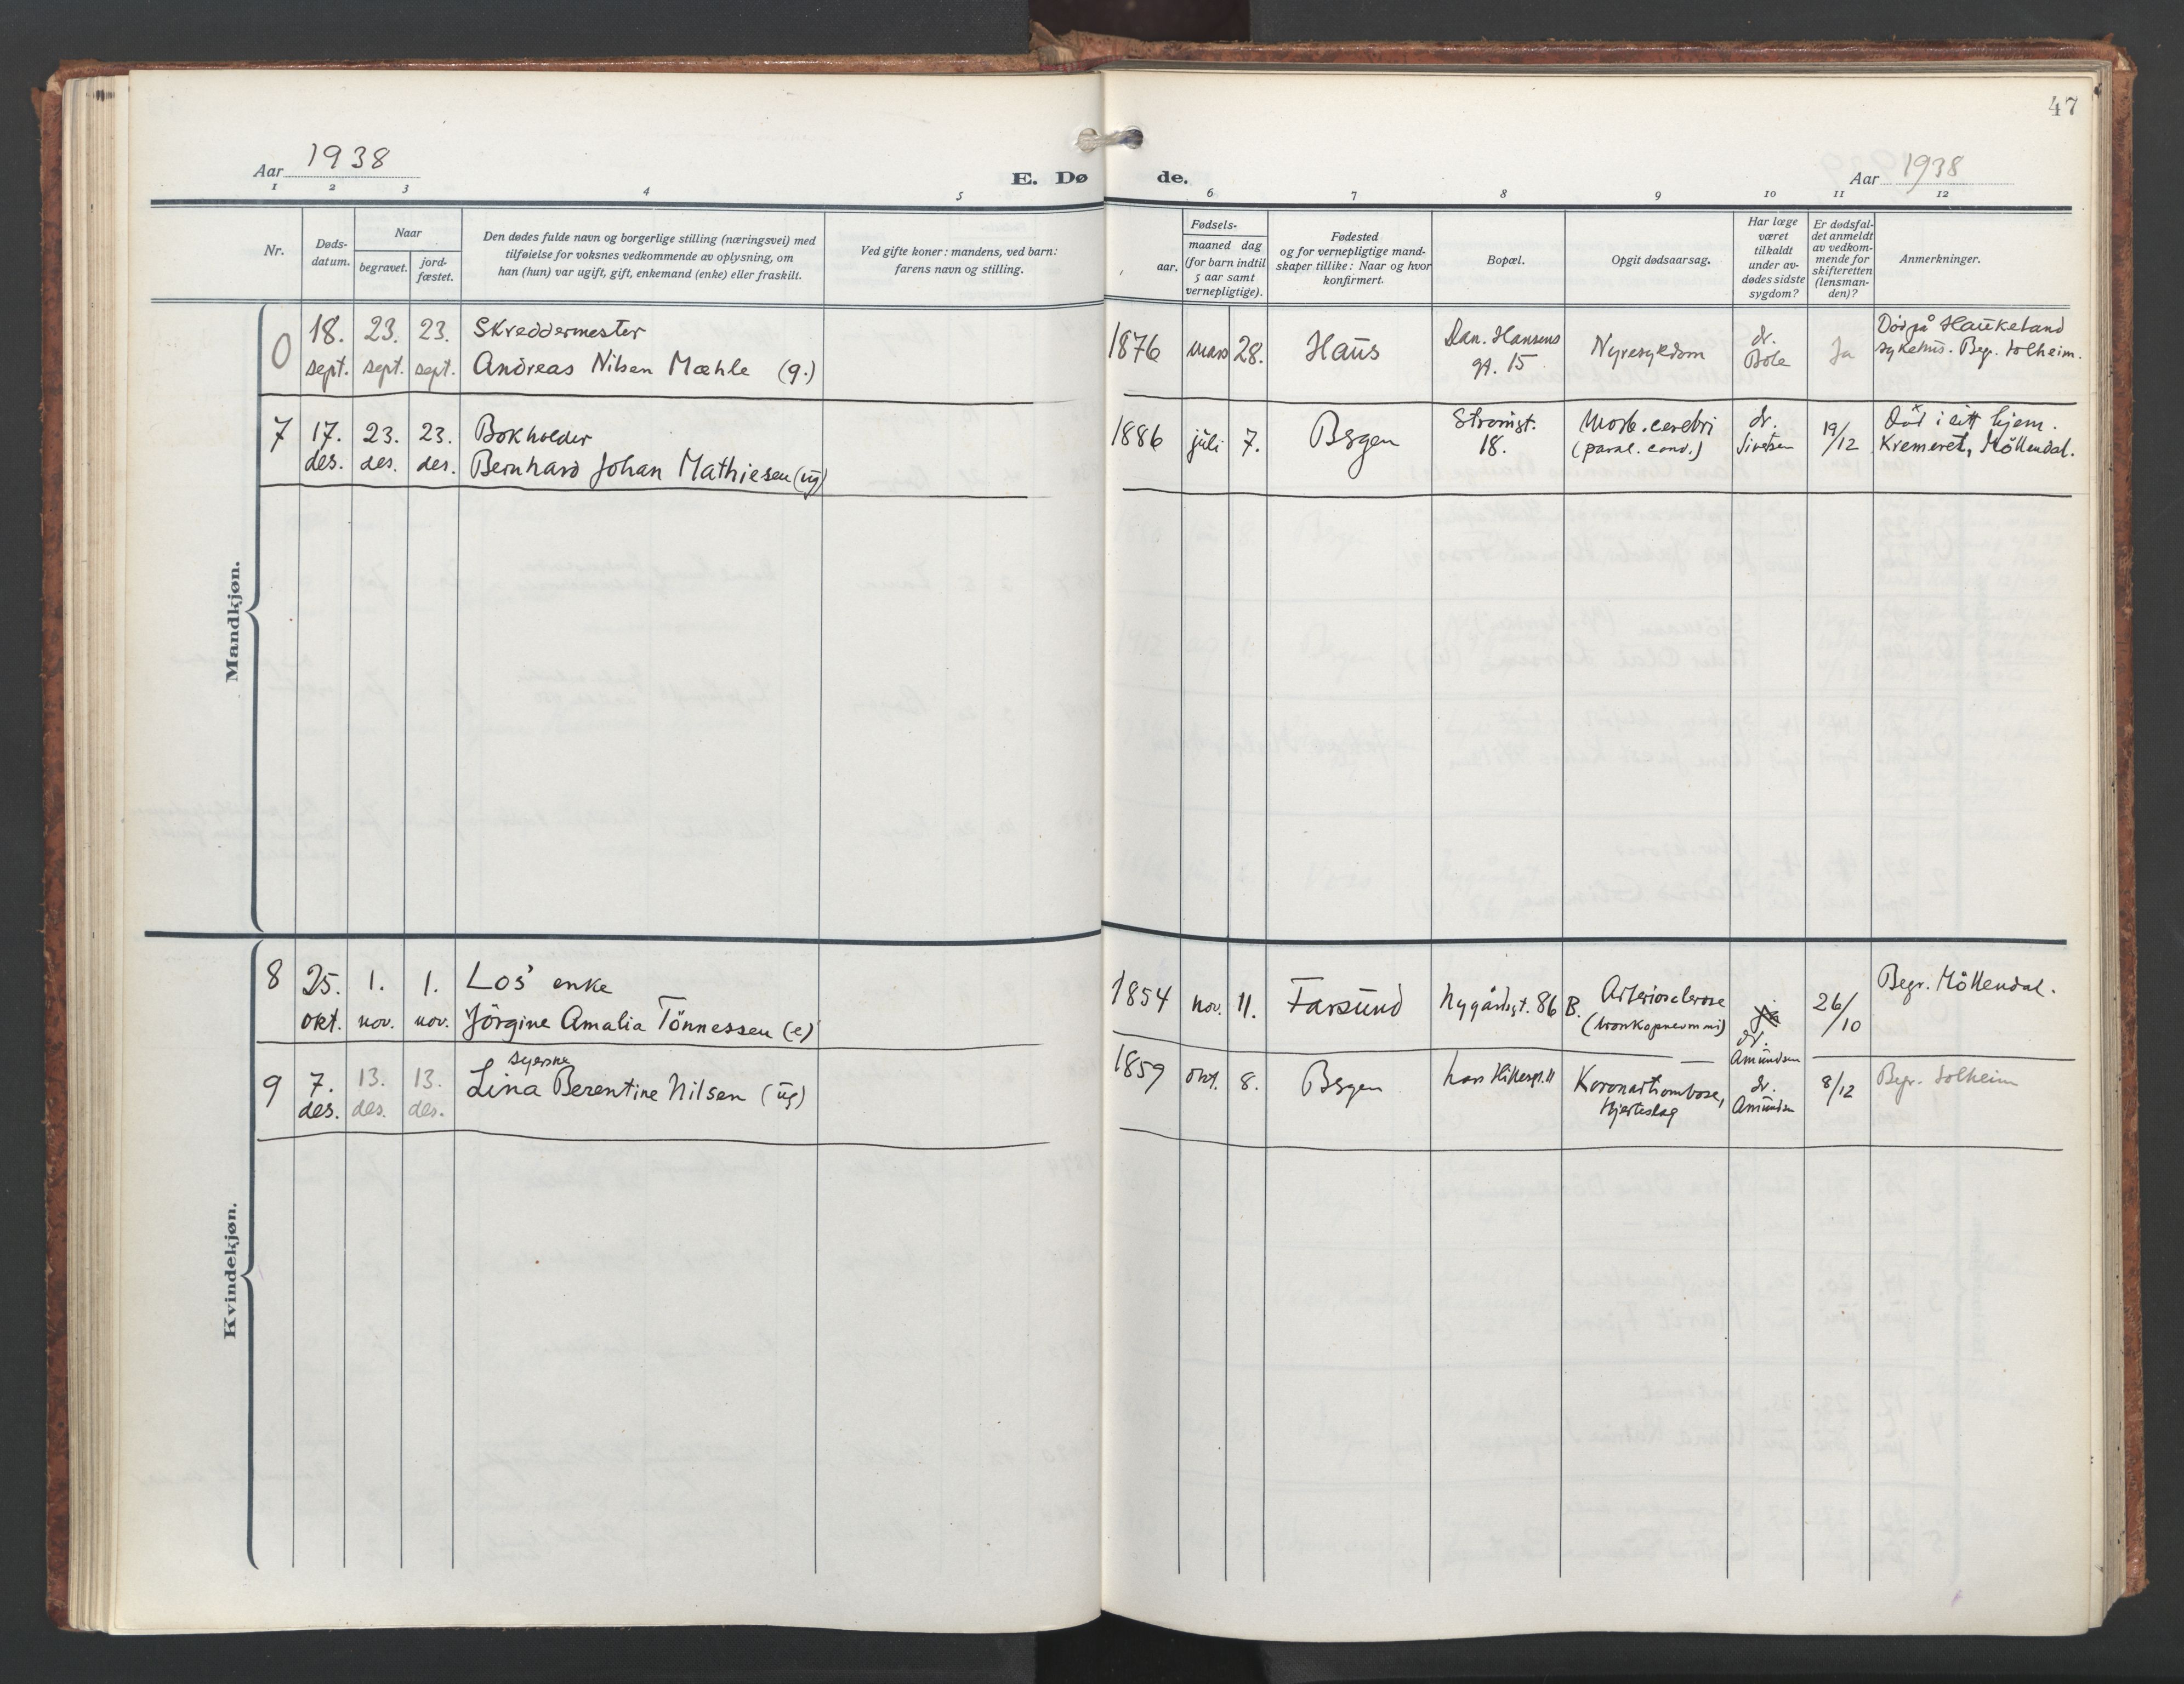 47
Aar 1938
E. Dø de.
Aar 1938
1 2 3 4 5 6 7 8 9 10 11 12
Nr.
Døds-
datum.
Naar
begravet.
jord-
fæstet.
Den dødes fulde navn og borgerlige stilling (næringsvei) med
tilføielse for voksnes vedkommende av oplysning, om
han (hun) var ugift, gift, enkemand (enke) eller fraskilt.
Ved gifte koner: mandens, ved barn:
farens navn og stilling.
Fødsels-
aar.
maaned dag
(for barn indtil
5 aar samt
vernepligtige).
Fødested
og for vernepligtige mand-
skaper tillike: Naar og hvor
konfirmert.
Bopæl.
Opgit dødsaarsag.
Har læge
været
tilkaldt
under av-
dødes sidste
sygdom?
Er dødsfal-
det anmeldt
av vedkom-
mende for
skifteretten
(lensman-
den)?
Anmerkninger.
Mandkjøn.
0 18. 23. 23. Skreddermester
sept. sept. sept. Andreas Nilsen Mæhle (g.)
1876 mars 28. Haus
Dan. Hansens
gt. 15
Nyresykdom
dr.
Bøle
Ja
Död på Haukeland
sykehus. Begr. Solheim.
7 17. 23. 23. Bokholder
des. des. des. Bernhard Johan Mathiesen (ug)
1886 juli 7. Bergen
Strömgt.
18.
Morb. cerebri
(paral. cond.)
dr.
Sivertsen
19/12
Död i sitt hjem.
Kremeret, Möllendal.
Kvindekjøn.
8 25. 1. 1. Los' enke
okt. nov. nov. Jörgine Amalia Tönnessen (e)
1854 nov. 11. Farsund
Nygårdsgt. 86 B.
Arteriosclerose
(bronkopneumoni)
ja
dr.
Amundsen
26/10
Begr. Möllendal.
9 7. 13. 13. syerske
des. des. des. Lina Berentine Nilsen (ug)
1859 okt. 8. Bergen
Lars Hillesgt. 11
Koronartrombose,
Hjerteslag
dr.
Amundsen
8/12
Begr. Solheim